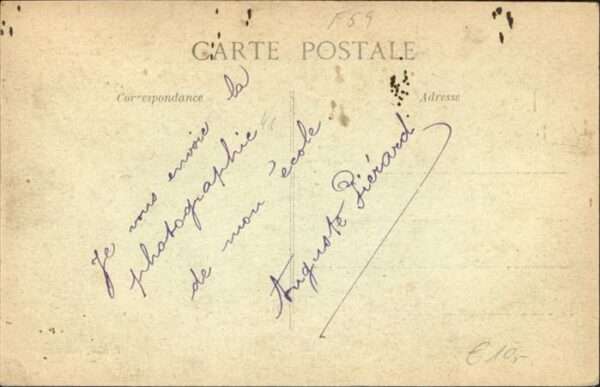 F59
CARTE POSTALE
Correspondance
Adresse
Je vous envoie la
photographie
de mon école
Auguste Piérard
€ 10,-